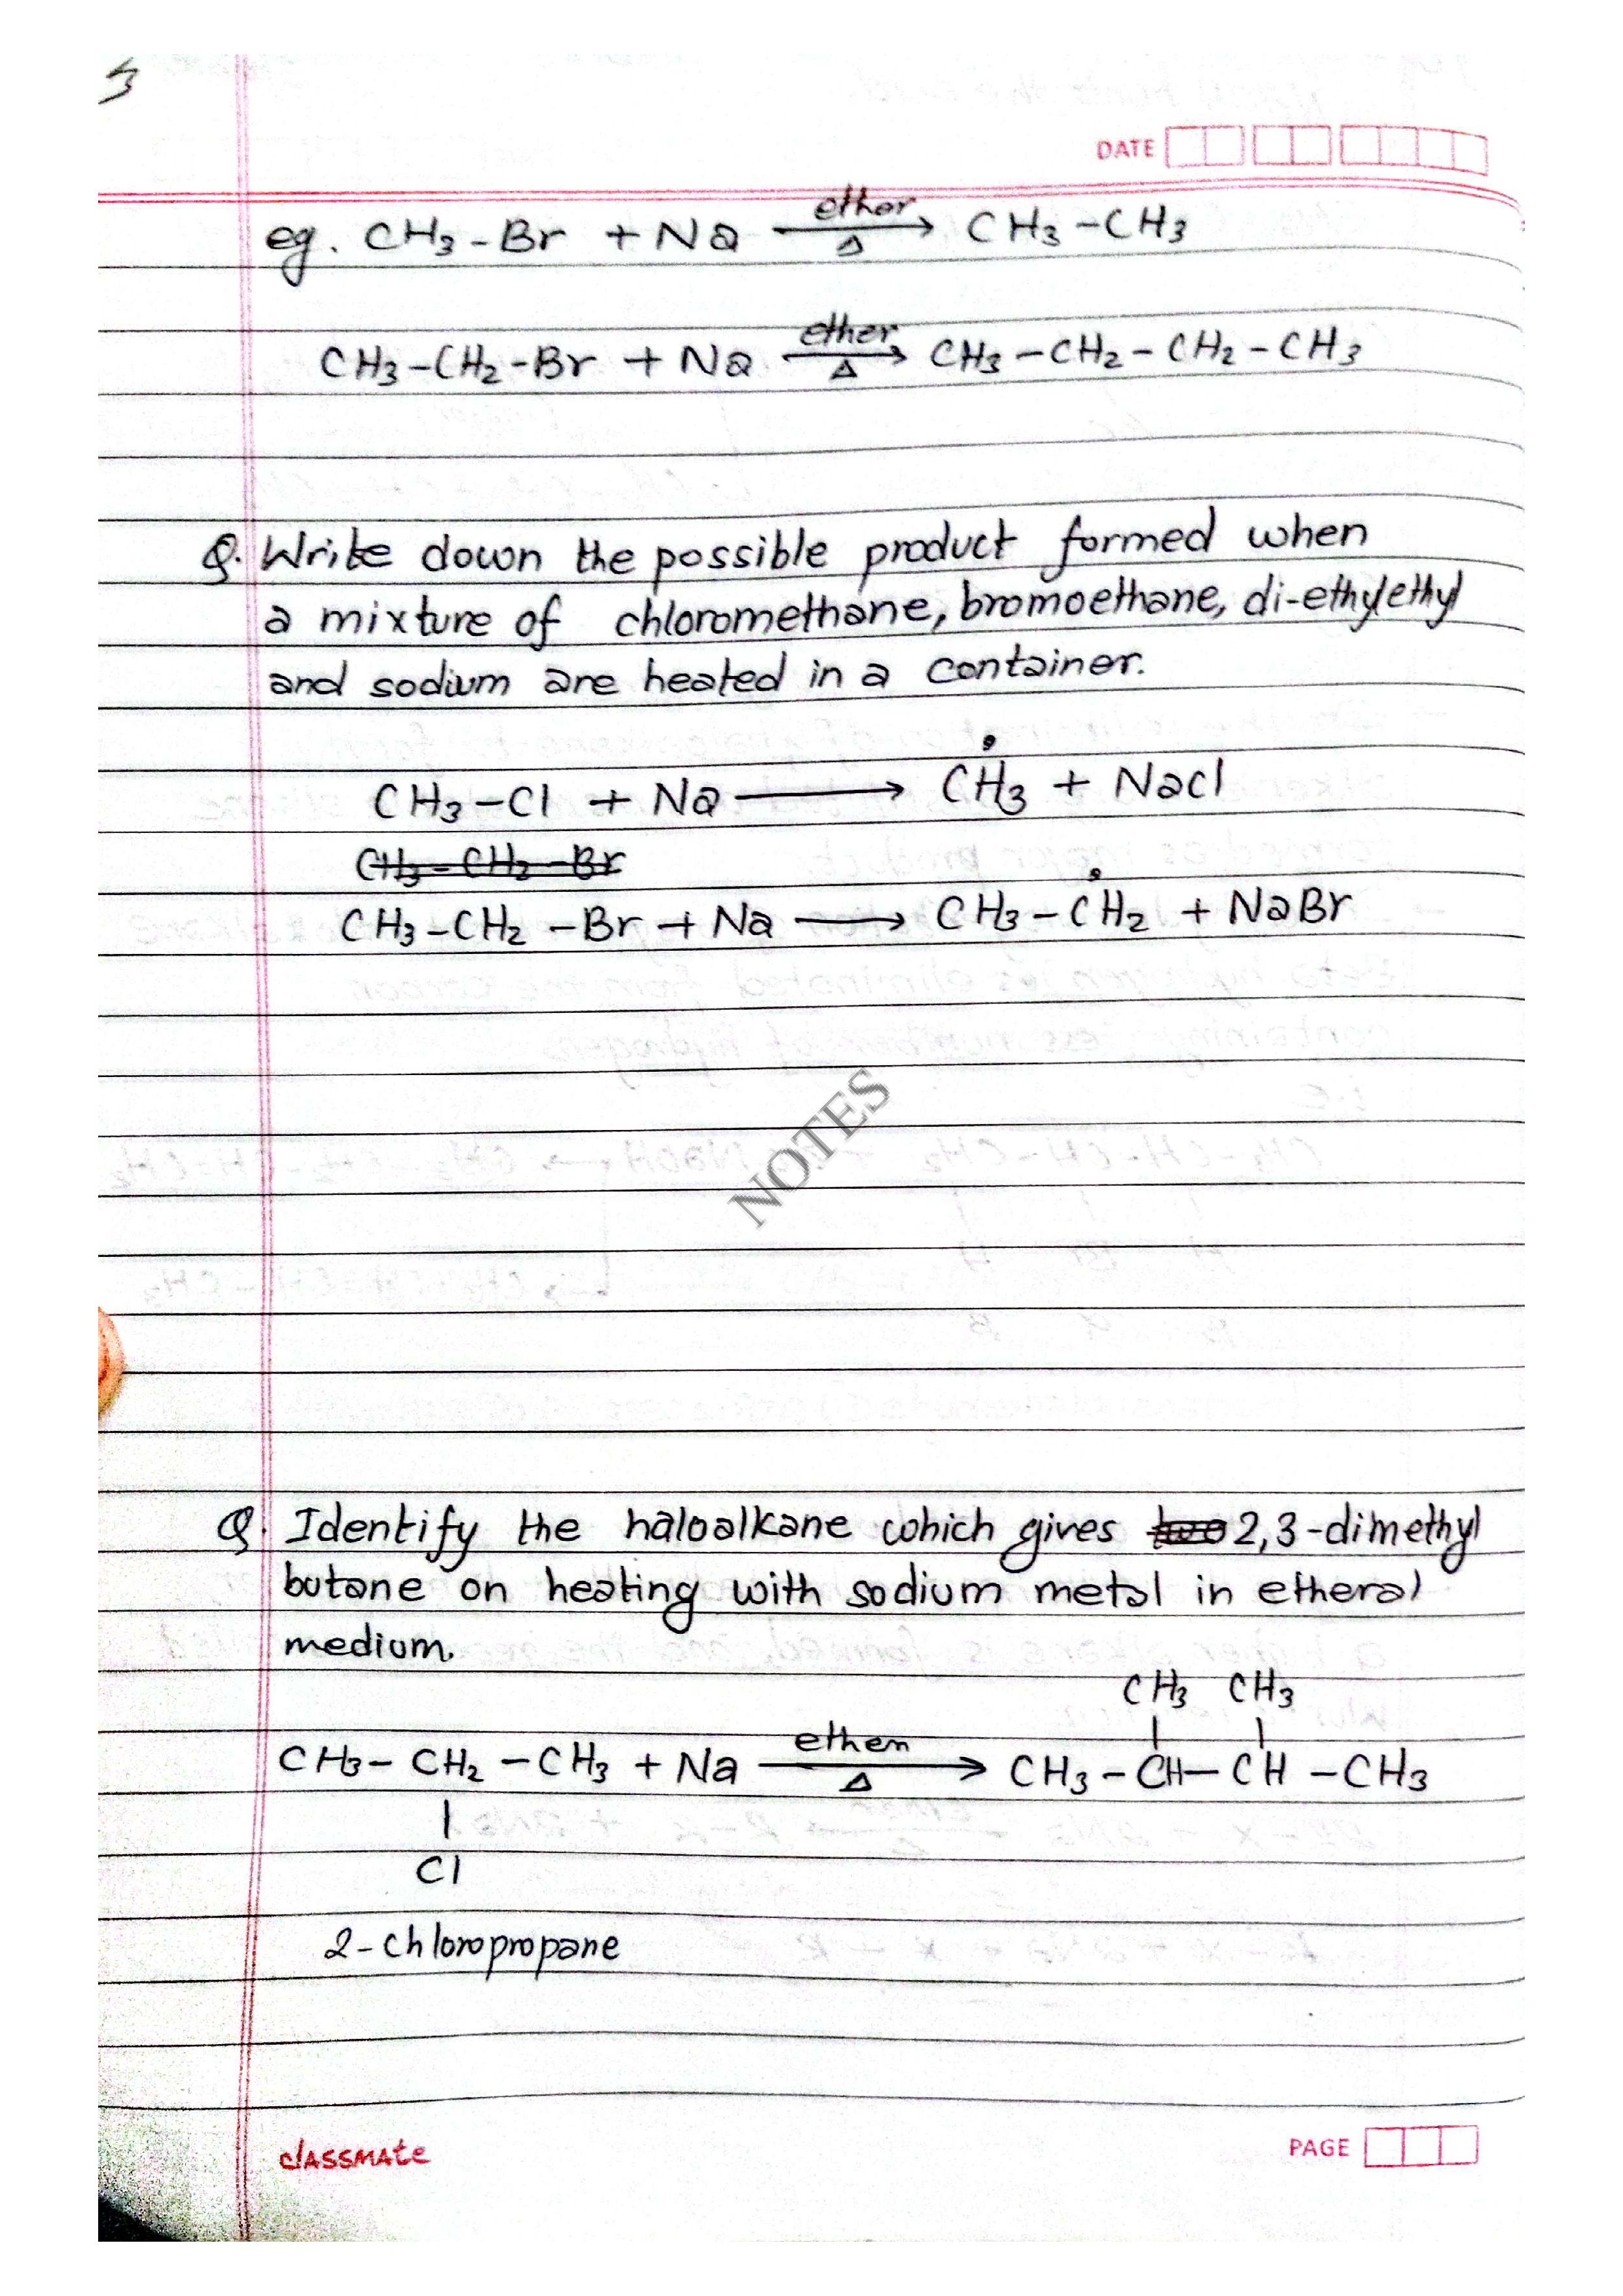 DATE
eg. CH3-Br + Na ether→ Δ CH3-CH3
CH3-CH2-Br + Na ether→ Δ CH3-CH2-CH2-CH3
Q. Write down the possible product formed when
a mixture of chloromethane, bromoethane, di-ethylethyl
and sodium are heated in a container.
CH3-Cl + Na → ĊH3 + NaCl
CH3-CH2-Br
CH3-CH2-Br + Na → CH3-ĊH2 + NaBr
NOTES
Q. Identify the haloalkane which gives 2,3-dimethyl
butane on heating with sodium metal in etheral
medium.
CH3 CH3
CH3-CH2-CH3 + Na ether→ Δ CH3-CH-CH-CH3
Cl
2-chloropropane
classmate
PAGE